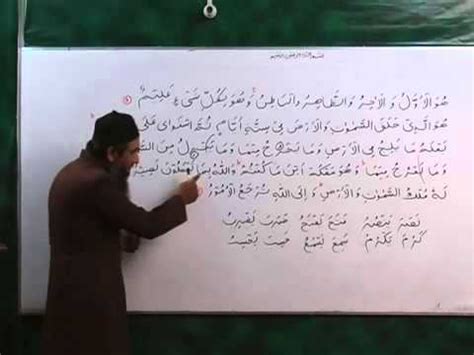 بسم الله الرحمن الرحيم
هُوَ الْاَوَّلُ وَ الْاٰخِرُ وَ الظَّاهِرُ وَ الْبَاطِنُ وَ هُوَ بِكُلِّ شَیْءٍ عَلِیْمٌ
هُوَ الَّذِیْ خَلَقَ السَّمٰوٰتِ وَ الْاَرْضَ فِیْ سِتَّةِ اَیَّامٍ ثُمَّ اسْتَوٰی عَلَی
یَعْلَمُ مَا یَلِجُ فِی الْاَرْضِ وَ مَا یَخْرُجُ مِنْهَا وَ مَا یَنْزِلُ مِنَ
وَ مَا یَعْرُجُ فِیْهَا وَ هُوَ مَعَكُمْ اَیْنَ مَا كُنْتُمْ وَ اللّٰهُ بِمَا تَعْمَلُوْنَ بَصِیْرٌ
لَهٗ مُلْكُ السَّمٰوٰتِ وَ الْاَرْضِ وَ اِلَی اللّٰهِ تُرْجَعُ الْاُمُوْرُ
نَصَرَ یَنْصُرُ فَتَحَ یَفْتَحُ ضَرَبَ یَضْرِبُ
كَرُمَ یَكْرُمُ سَمِعَ یَسْمَعُ حَسِبَ یَحْسِبُ